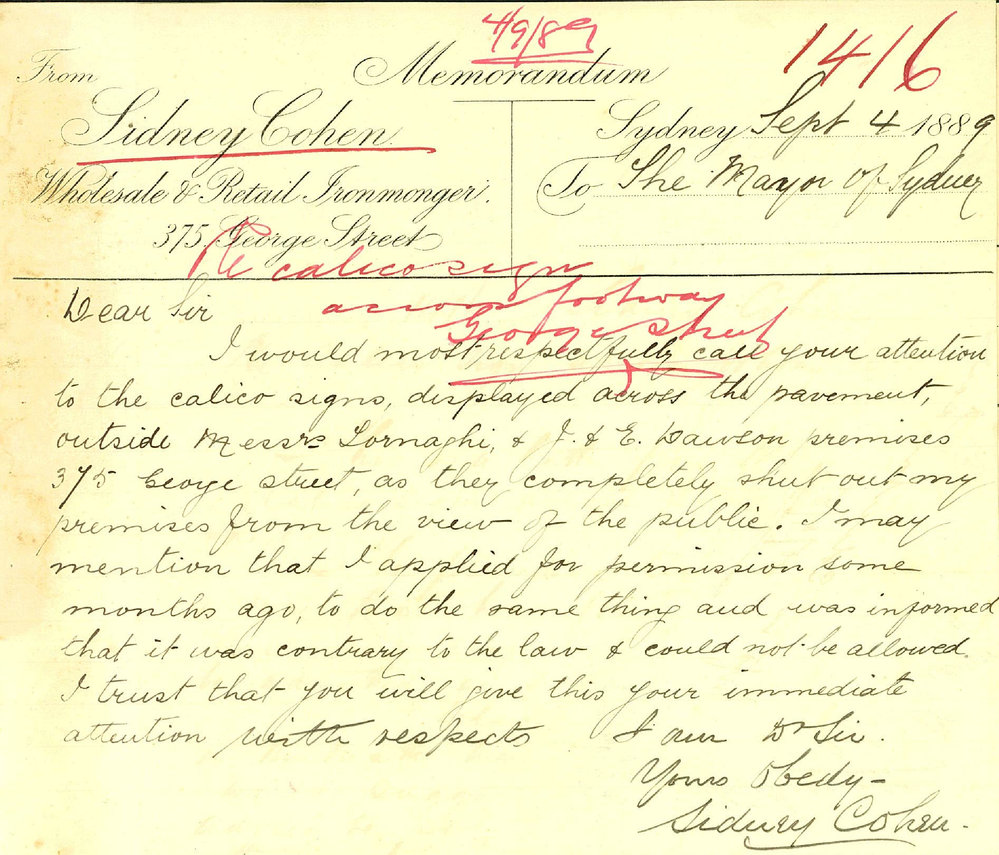 4/9/89
1416
From
Memorandum
Sidney Cohen
Sydney Sept 4 1889
Wholesale & Retail Ironmonger.
To The Mayor of Sydney
375, George Street
Re calico sign
across footway
George Street
Dear Sir
I would most respectfully call your attention
to the calico signs, displayed across the pavement,
outside Messrs Lornaghi, & J. & E. Dawson premises
375 George street, as they completely shut out my
premises from the view of the public. I may
mention that I applied for permission some
months ago, to do the same thing and was informed
that it was contrary to the law & could not be allowed.
I trust that you will give this your immediate
attention with respects I am Dr Sir.
Yours Obedy-
Sidney Cohen.